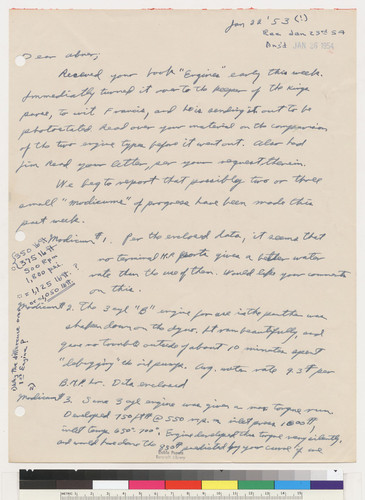 Jan 22 '53 (!)
Rec Jan 23rd 54
Ans'd JAN 2 1954
Dear Abner,
Received your book "Engines" early this week.
Immediately turned it over to the keeper of the kings
peace, to wit Francis, and he is sending it out to be
photostated. Read over your material on the comparison
of the two engine types before it went out. Also had
Jim read your letter, per your request therein.
We beg to report that possibly two or three
small "modicums" of progress have been made this
past week.
Modicum # 1. Per the enclosed data, it seems that
no terminal M.P. ports gives a better water
rate than the use of them. Would like your comments
on this.
Modicum # 2. The 3 cyl "B" engine for use in the panther was
shaken down on the dyno. It ran beautifully, and
gave no trouble outside of about 10 minutes spent
"debugging" the oil pumps. Avg. water rate 9.3# per
B.H.P. hr. Data enclosed
Modicum # 3. Same 3 cyl engine was given a max torque run.
Developed 750 ft# @ 550 r.p.m. inlet press 1800#,
inlet temp 650°-700°. Engine developed the torque very silently,
and would have done the 950# predicted by your curve if we
Why the difference on